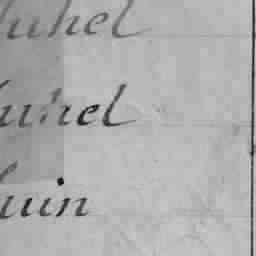 uhel
uhel
uin